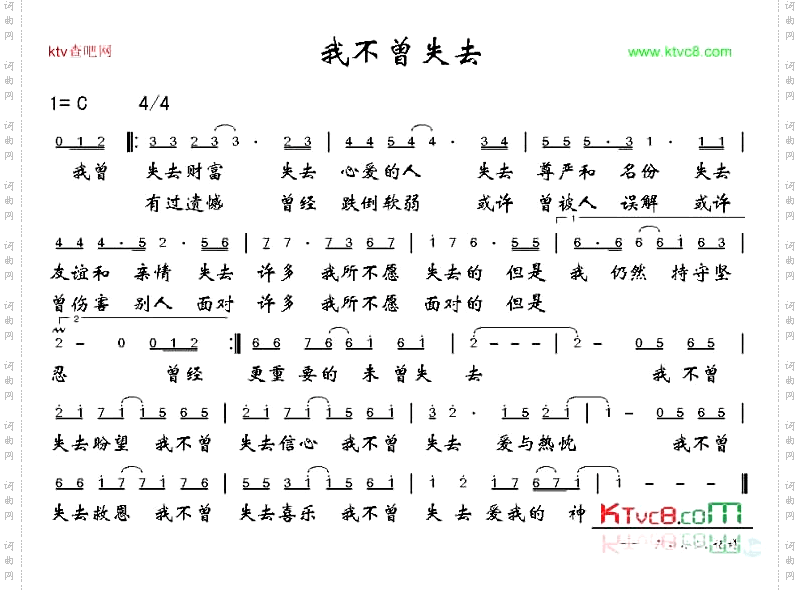 ktv查吧网
我不曾失去
www.ktvc8.com
1= C 4/4
0 1 2 3 3 2 3 3 · 2 3 4 4 5 4 4 · 3 4 5 5 5 · 3 1 · 1 1
我曾 失去财富 失去 心爱的人 失去 尊严和 名份 失去
有过遗憾 曾经 跌倒软弱 或许 曾被人 误解 或许
4 4 4 · 5 2 · 5 6 7 7 · 7 3 6 7 1 7 6 · 5 5 6 · 6 6 6 1 6 3
友谊和 亲情 失去 许多 我所不愿 失去的 但是 我 仍然 持守坚
曾伤害 别人 面对 许多 我所不愿 面对的 但是
2 - 0 0 1 2 6 6 7 6 6 1 6 1 2 - - 2 - 0 5 6 5
忍 曾经 更重要的 未曾失 去 我不曾
2 1 7 1 1 5 6 5 2 1 7 1 1 5 6 1 3 2 · 1 5 2 1 1 - 0 5 6 5
失去盼望 我不曾 失去信心 我不曾 失去 爱与热忱 我不曾
6 6 1 7 7 1 7 6 5 5 3 1 1 5 6 1 1 2 1 7 6 7 1 1 - - -
失去救恩 我不曾 失去喜乐 我不曾 失去爱我的 神
KTvc8.com
词曲网